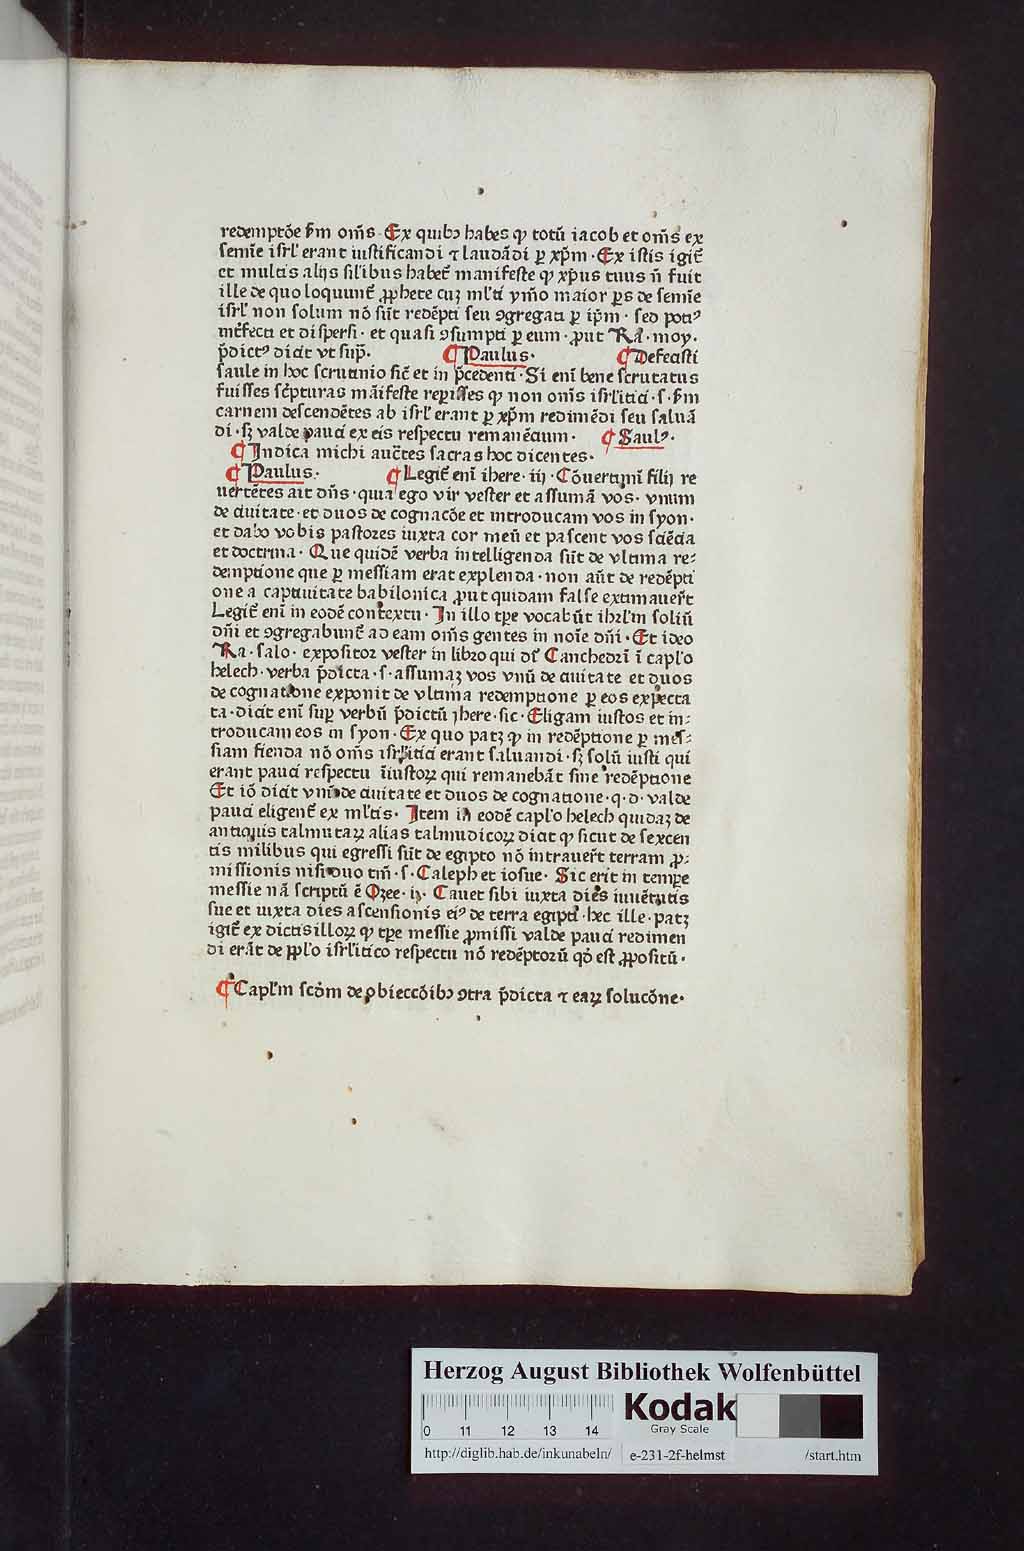 redemptōe ẜm om̄s · Ex quibꝫ habes ꝙ totū iacob et om̄s ex
semīe isrl' erant iustificandi ⁊ laudādi ꝑ xp̄m · Ex istis igit᷑
et multis alijs sil'ibus habet᷑ manifeste ꝙ xp̄us tuus n̄ fuit
ille de quo loquunt᷑ ꝓphete cuꝫ ml'ti ymo maior ꝑs de semīe
isrl' non solum nō sūt redēpti seu ꝯgregati ꝑ ip̄m · sed potiꝰ
int᷑fecti et dispersi · et quasi ꝯsumpti ꝑ eum · ꝓut Ra · moy ·
p̄dictꝰ dicit vt sup̄.
¶ Paulus ·
¶ Defecisti
saule in hoc scrutinio sic̄ et in p̄cedenti · Si enī bene scrutatus
fuisses sc̄pturas māifeste reꝑisses ꝙ non om̄s isrl'itici · s · ẜm
carnem descendētes ab isrl' erant ꝑ xp̄m redimēdi seu saluā
di · sꝫ valde pauci ex eis respectu remanēcium ·
¶ Saulꝰ ·
¶ Indica michi auct̄es sacras hoc dicentes ·
¶ Paulus ·
¶ Legit᷑ enī ihere · iij · Cōuertimī filij re
uertētes ait dn̄s · quia ego vir vester et assumā vos · vnum
de ciuitate · et duos de cognacōe et introducam vos in syon ·
et dabo vobis pastores iuxta cor meū et pascent vos sciēcia
et doctrina · Que quidē verba intelligenda sūt de vltima re⸗
demptione que ꝑ messiam erat explenda · non aūt de redēpti
one a captiuitate babilonica ꝓut quidam false extimauer̄t
Legit᷑ enī in eodē contextu · In illo tꝑe vocabūt ihrl'm soliū
dn̄i et ꝯgregabunt᷑ ad eam om̄s gentes in noīe dn̄i · Et ideo
Ra · salo · expositor vester in libro qui dr̄ Canchedrī ī capl'o
helech · verba p̄dicta · s · assumaꝫ vos vnū de ciuitate et duos
de cognatione exponit de vltima redemptione ꝑ eos expecta
ta · dicit enī suꝑ verbū p̄dictū jhere · sic · Eligam iustos et in⸗
troducam eos in syon · Ex quo patꝫ ꝙ in redēptione ꝑ mes⸗
siam fienda nō om̄s isrl'itici erant saluandi · sꝫ solū iusti qui
erant pauci respectu īiustoꝝ qui remanebāt sine redēptione
Et iō dicit vnū de ciuitate et duos de cognatione · q · d · valde
pauci eligent᷑ ex ml'tis · Item in eodē capl'o helech quidaꝫ de
antiquis talmutaꝝ alias talmudicoꝝ dicit ꝙ sicut de sexcen
tis milibus qui egressi sūt de egipto nō intrauer̄t terram ꝓ⸗
missionis nisi duo tm̄ · s · Caleph et iosue · Sic erit in tempe
messie nā scriptū ē Ozee · ij · Cauet sibi iuxta dies iuuētutis
sue et iuxta dies ascensionis eiꝰ de terra egipti · hec ille · patꝫ
igit᷑ ex dictis illoꝝ ꝙ tꝑe messie ꝓmissi valde pauci redimen
di erāt de ppl'o isrl'itico respectu nō redēptorū qd̄ est ꝓpositū ·
¶ Capl'm scd̄m de obieccōibꝫ ꝯtra p̄dicta ⁊ eaꝝ solucōne ·
Herzog August Bibliothek Wolfenbüttel
0 11 12 13 14
Kodak
Gray Scale
http://diglib.hab.de/inkunabeln/ e-231-2f-helmst /start.htm